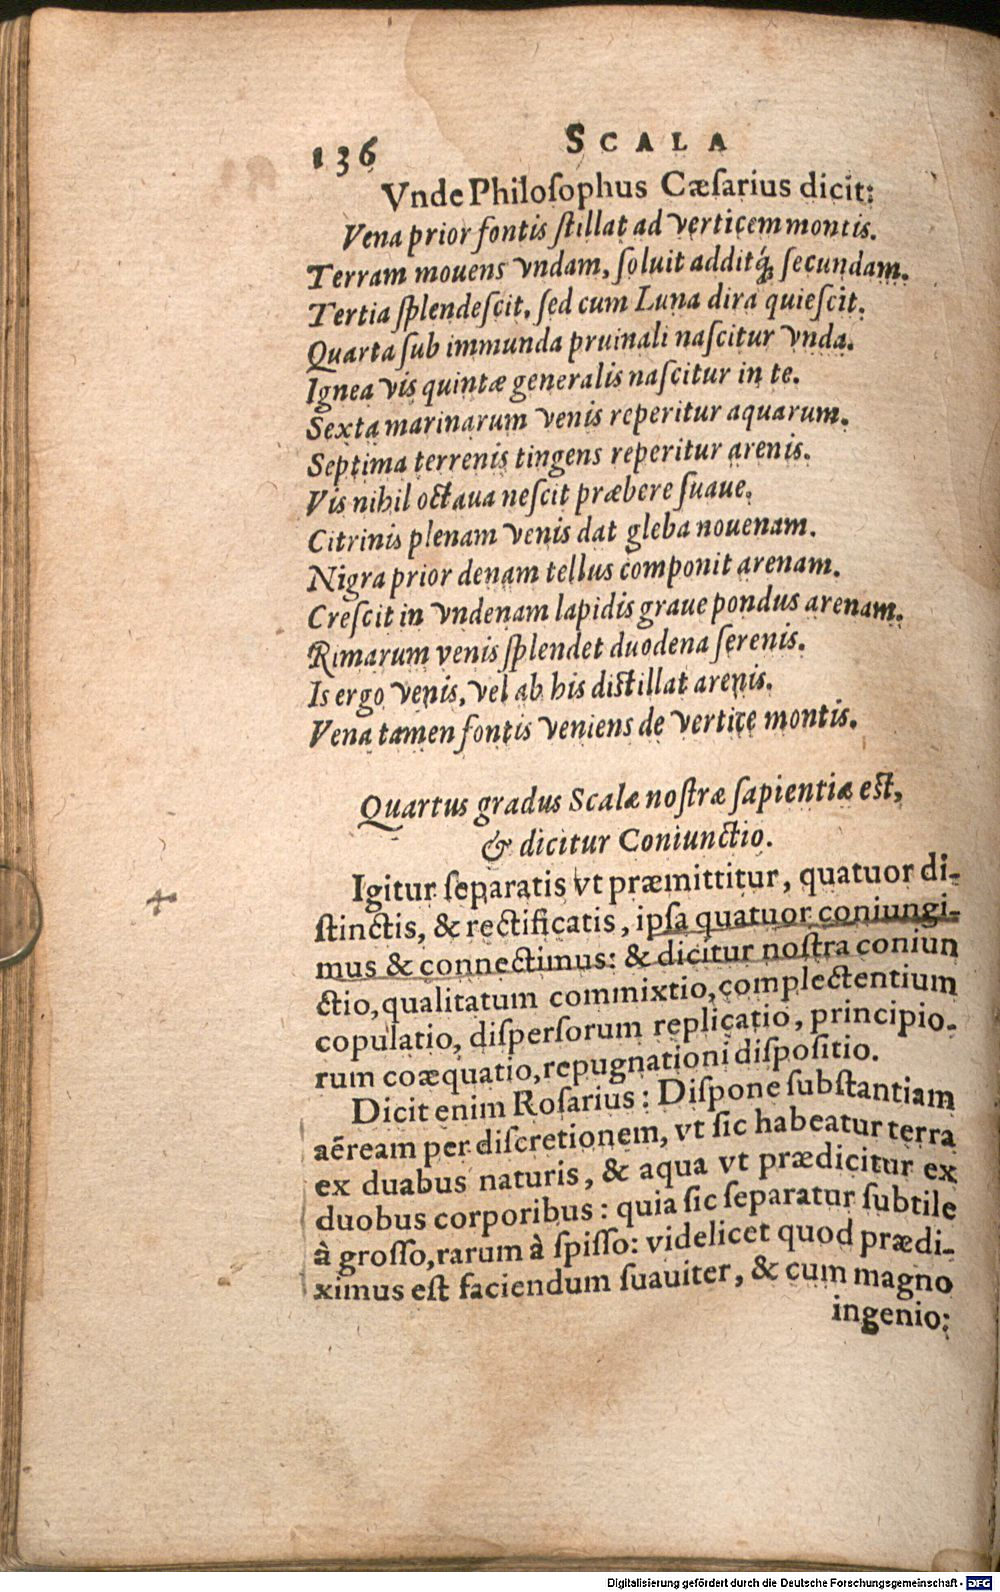 136 SCALA
Vnde Philoſophus Cæſarius dicit:
Vena prior fontis ſtillat ad verticem montis.
Terram mouens vndam, ſoluit additq́; ſecundam.
Tertia ſplendeſcit, ſed cum Luna dira quieſcit.
Quarta ſub immunda pruinali naſcitur vnda.
Ignea vis quintæ generalis naſcitur in te.
Sexta marinarum venis reperitur aquarum.
Septima terrenis tingens reperitur arenis.
Vis nihil octaua neſcit præbere ſuaue.
Citrinis plenam venis dat gleba nouenam.
Nigra prior denam tellus componit arenam.
Creſcit in vndenam lapidis graue pondus arenam.
Rimarum venis ſplendet duodena ſerenis.
Is ergo venis, vel ab his diſtillat arenis.
Vena tamen fontis veniens de vertice montis.
Quartus gradus Scalæ noſtræ ſapientiæ eſt,
& dicitur Coniunctio.
Igitur ſeparatis vt præmittitur, quatuor di-
ſtinctis, & rectificatis, ipſa quatuor coniungi-
mus & connectimus: & dicitur noſtra coniun
ctio, qualitatum commixtio, complectentium
copulatio, diſperſorum replicatio, principio-
rum coæquatio, repugnationi diſpoſitio.
Dicit enim Roſarius: Diſpone ſubſtantiam
aëream per diſcretionem, vt ſic habeatur terra
ex duabus naturis, & aqua vt prædicitur ex
duobus corporibus: quia ſic ſeparatur ſubtile
à groſſo, rarum à ſpiſſo: videlicet quod prædi-
ximus eſt faciendum ſuauiter, & cum magno
ingenio:
Digitalisierung gefördert durch die Deutsche Forschungsgemeinschaft - DFG